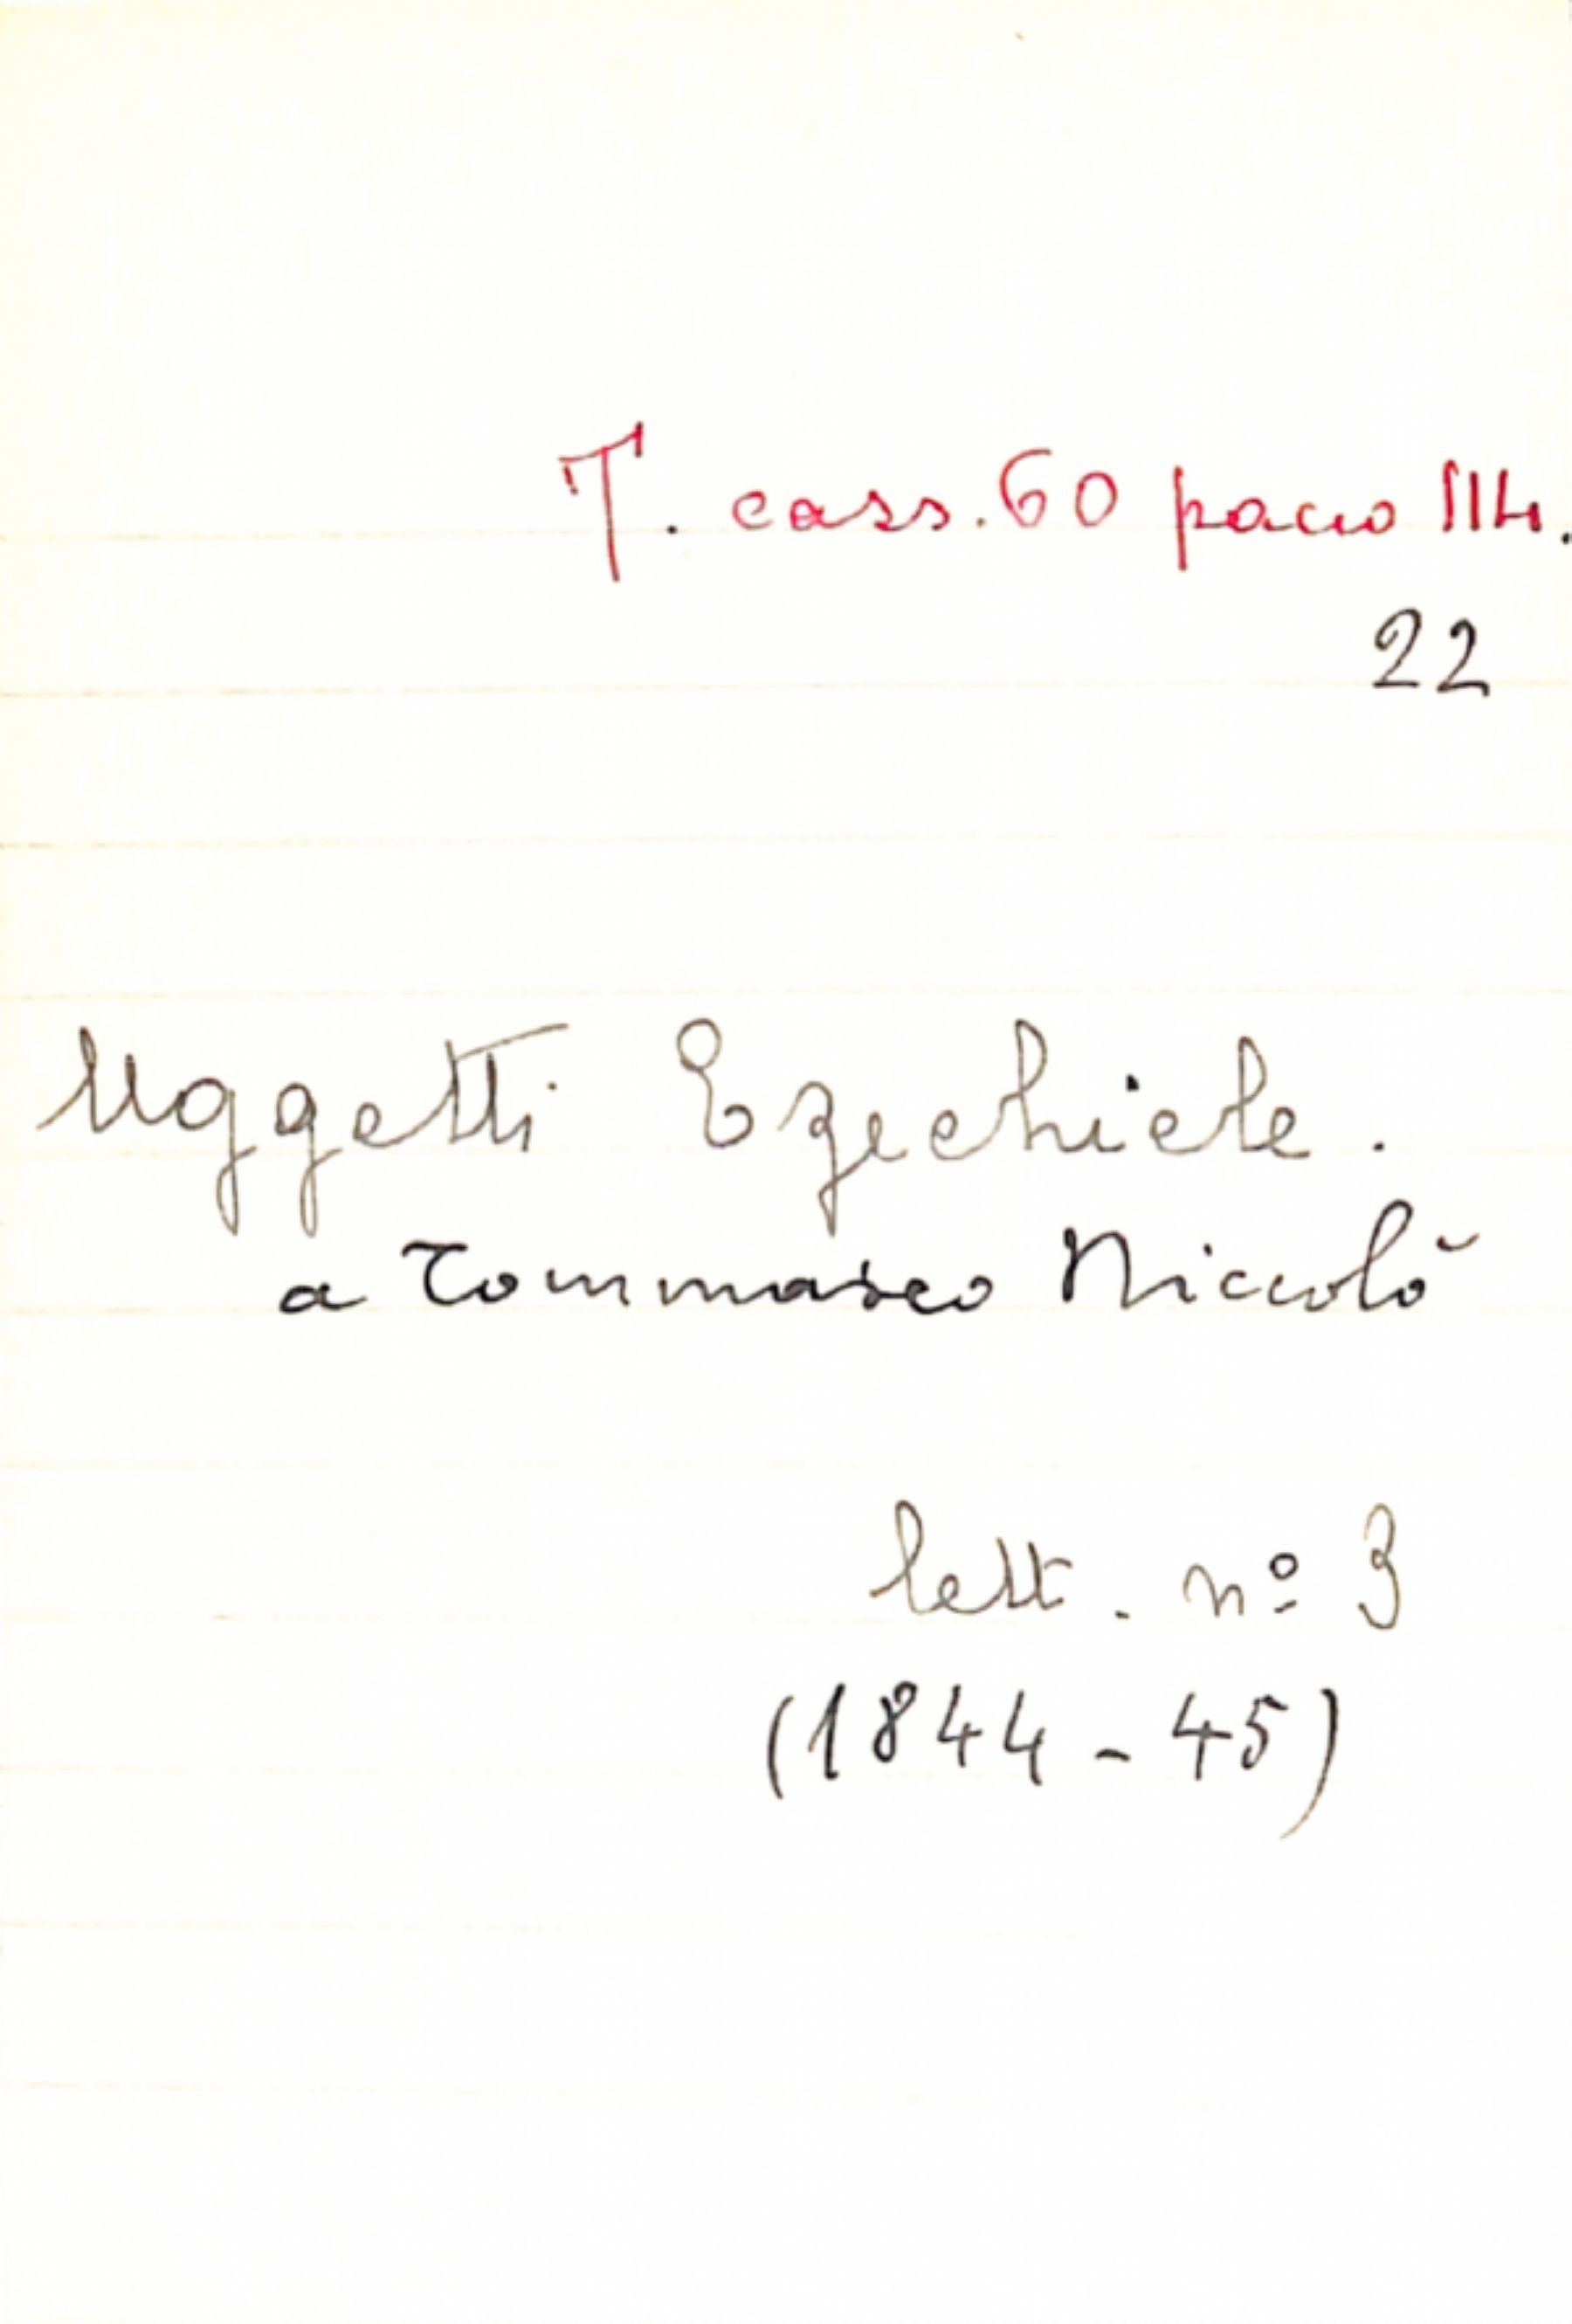 T. cass. 60 pacco 114.
22
Uggetti Ezechiele.
a Tommaseo Niccolò
lett. nº 3
(1844 - 45)